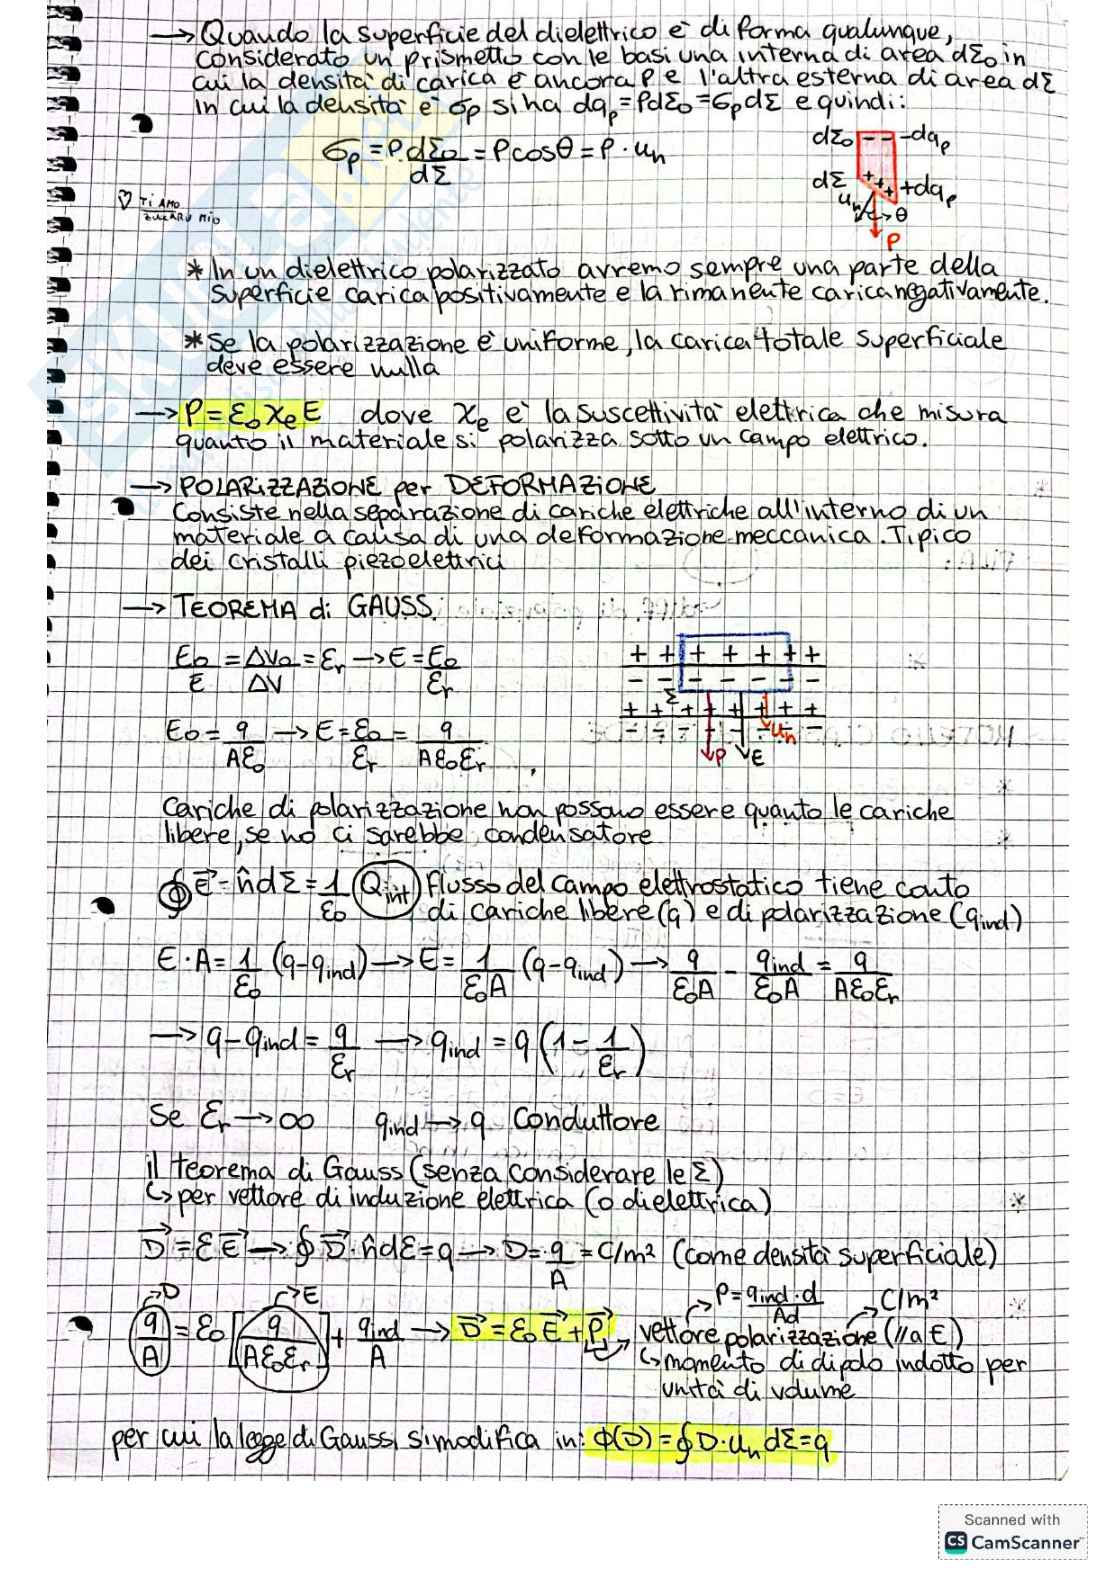 → Quando la superficie del dielettrico è di forma qualunque,
considerato un prismetto con le basi una interna di area dΣ₀ in
cui la densità di carica è ancora P e l'altra esterna di area dΣ
in cui la densità è σp si ha dqp = PdΣ₀ = σpdΣ e quindi:
σp = P dΣ₀/dΣ = P cosθ = P · un
dΣ₀ - - -dqp
dΣ + + + +dqp
un θ
P
♡ Ti AMO
ZUCCARU MIO
* In un dielettrico polarizzato avremo sempre una parte della
superficie carica positivamente e la rimanente carica negativamente.
* Se la polarizzazione è uniforme, la carica totale superficiale
deve essere nulla
→ P = ε₀ χe E dove χe è la suscettività elettrica che misura
quanto il materiale si polarizza sotto un campo elettrico.
→ POLARIZZAZIONE per DEFORMAZIONE
Consiste nella separazione di cariche elettriche all'interno di un
materiale a causa di una deformazione meccanica. Tipico
dei cristalli piezoelettrici
→ TEOREMA di GAUSS:
E₀/E = ΔV₀/ΔV = εr → E = E₀/εr
+ + + + + + +
- - - - - - -
Σ
+ + + + + + +
- - - - - - -
un
P E
E₀ = q/Aε₀ → E = E₀/εr = q/Aε₀εr
Cariche di polarizzazione non possono essere quanto le cariche
libere, se no ci sarebbe condensatore
∮ E⃗ = n̂ dΣ = 1/ε₀ (Qint) flusso del campo elettrostatico tiene conto
di cariche libere (q) e di polarizzazione (qind)
E · A = 1/ε₀ (q-qind) → E = 1/ε₀A (q-qind) → q/ε₀A - qind/ε₀A = q/Aε₀εr
→ q-qind = q/εr → qind = q(1 - 1/εr)
Se εr → ∞ qind → q Conduttore
il teorema di Gauss (senza considerare le Σ)
↳ per vettore di induzione elettrica (o dielettrica)
D⃗ = εE⃗ → ∮ D⃗ · n̂ dΣ = q → D = q/A = C/m² (come densità superficiale)
→D →E P = qind·d/Ad C/m²
q/A = ε₀ [q/Aε₀εr] + qind/A → D⃗ = ε₀E⃗ + P⃗ → vettore polarizzazione (// a E)
↳ momento di dipolo indotto per
unità di volume
per cui la legge di Gauss si modifica in: Φ(D) = ∮ D · un dΣ = q
Scanned with
CS CamScanner